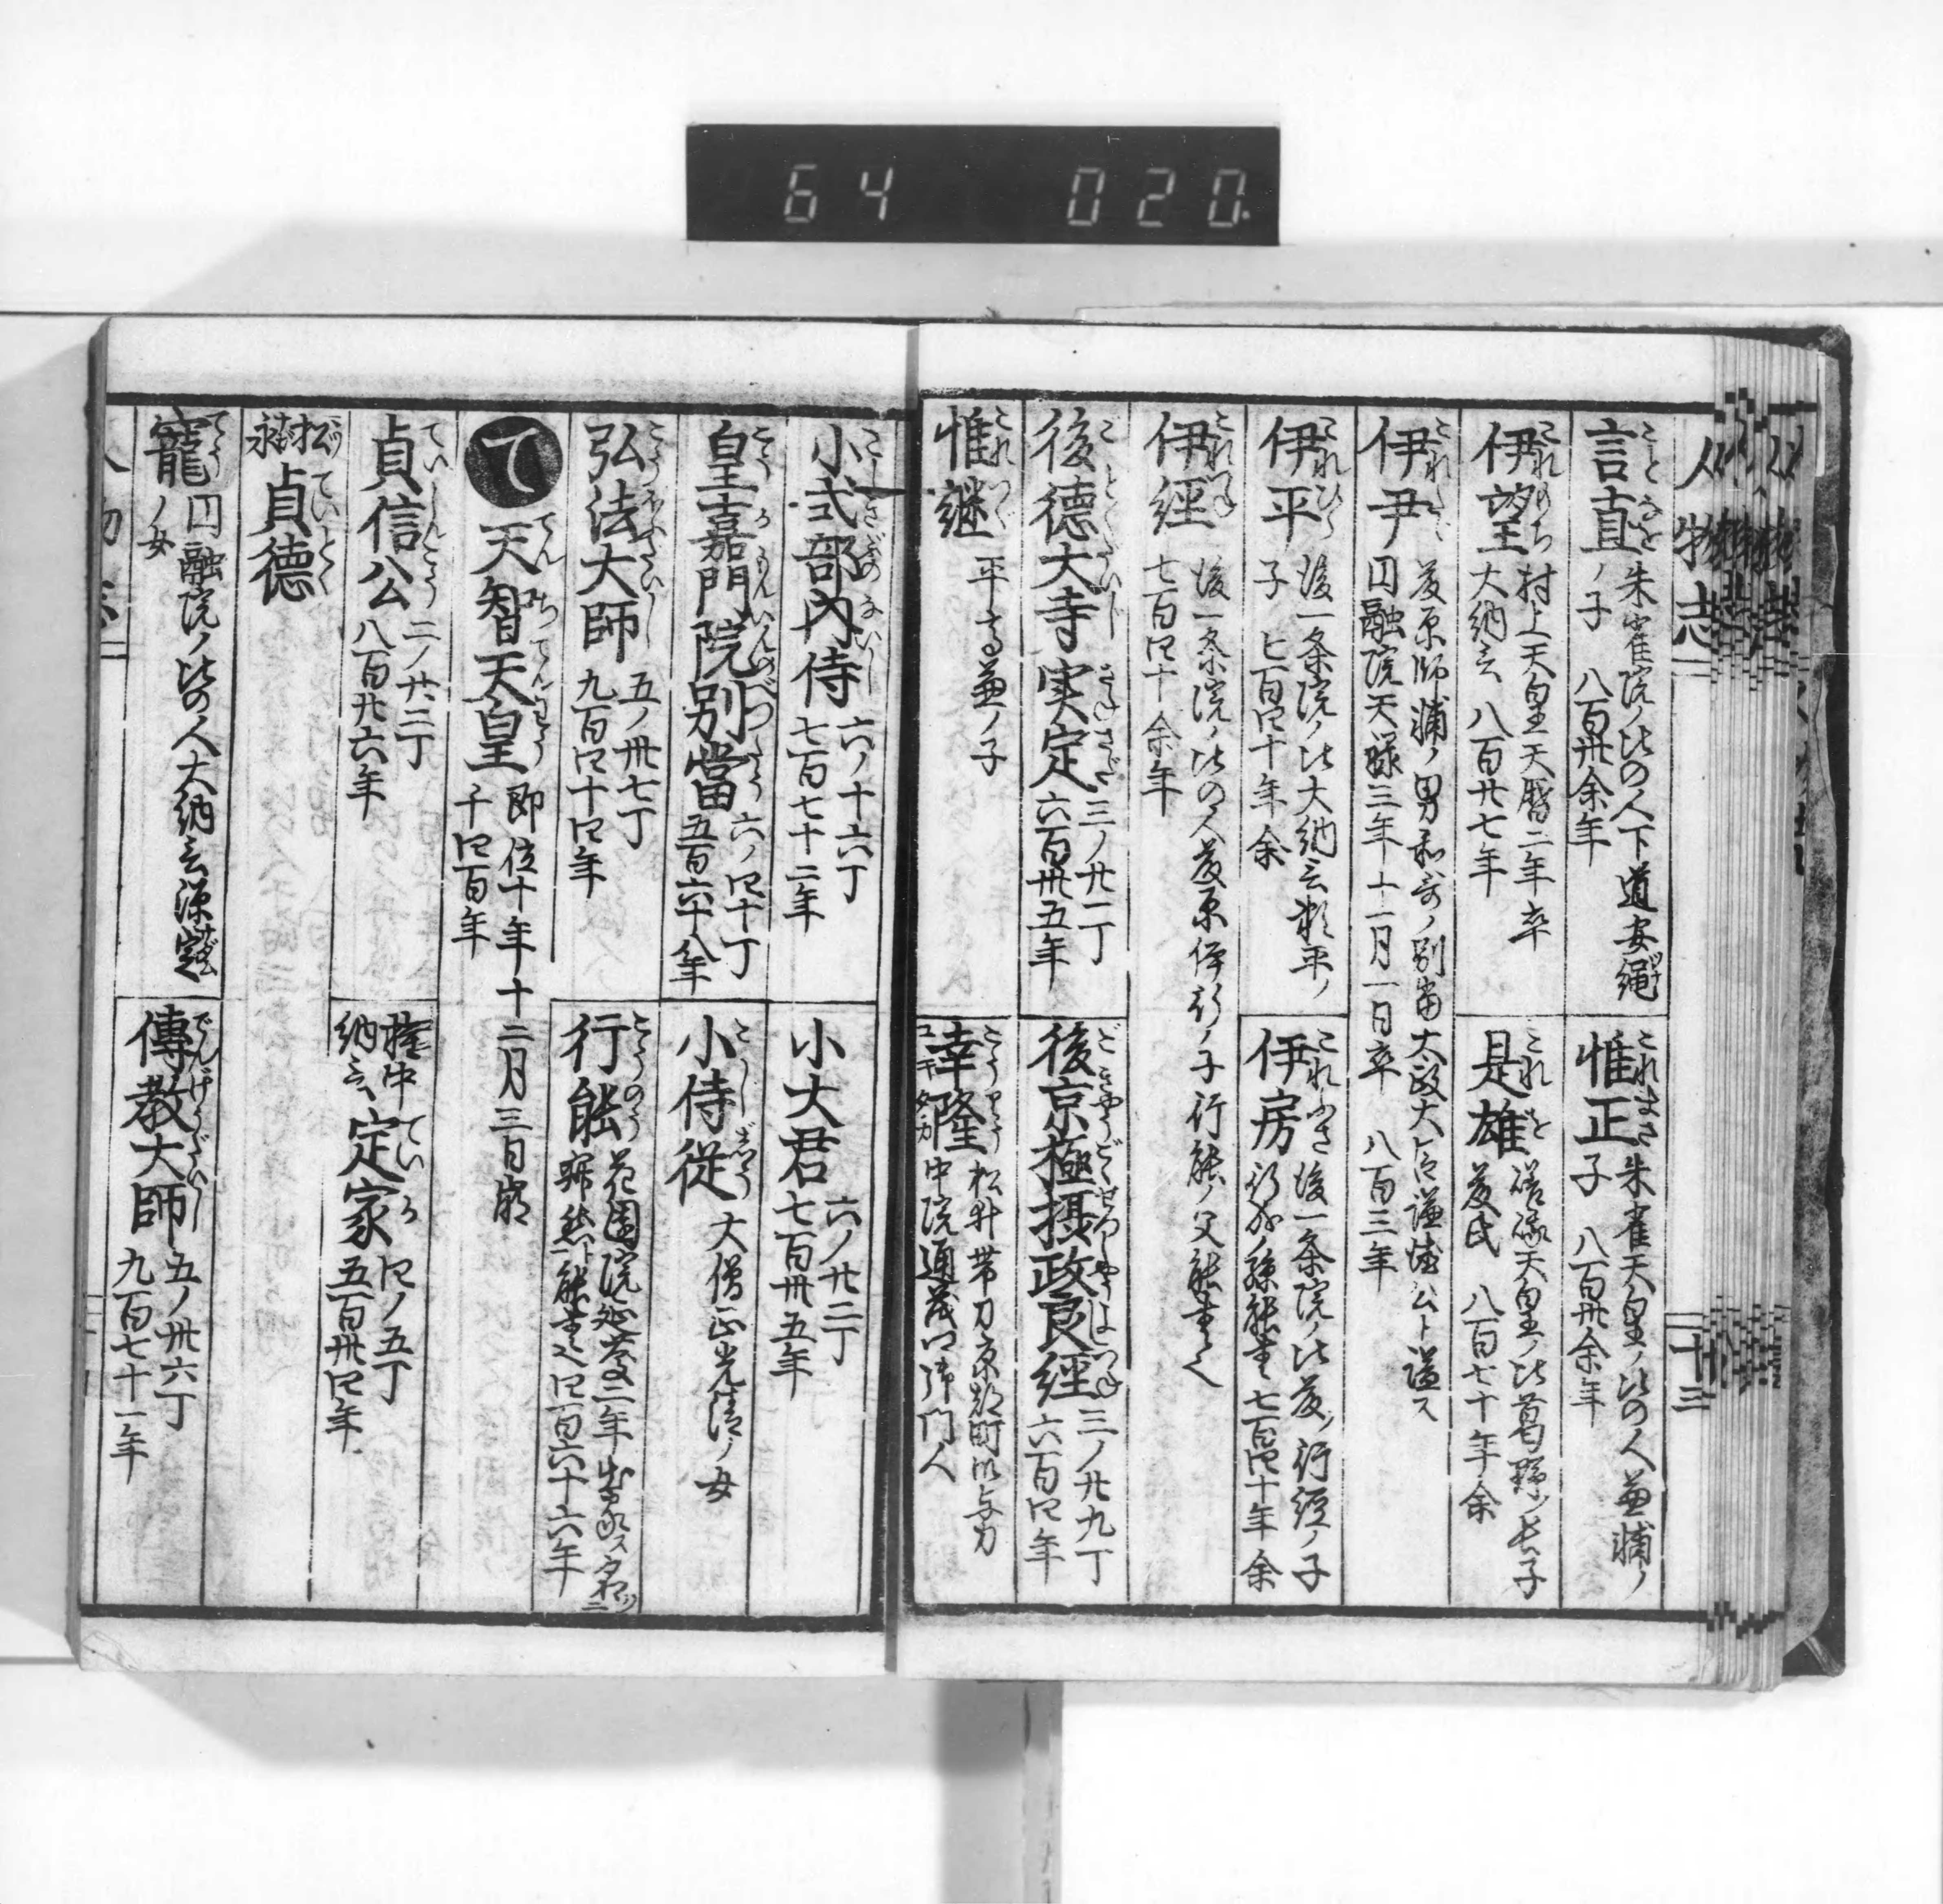 64 020
人物志
二十三
言直 朱雀院ノ比の人下道安縄
ノ子 八百卅余年
惟正 朱雀天皇ノ比の人兼輔ノ
子 八百卅余年
伊望 村上天皇天暦二年卒
大納言 八百廿七年
是雄 嵯峨天皇ノ比葛野ノ長子
八百七十年余
伊尹 藤原師輔ノ男和哥ノ別当太政大臣謙徳公ト諡ス
円融院天禄三年十一月一日卒 八百三年
伊平 後一条院ノ比大納言 平ノ
子 七百四十年余
伊房 後一条院ノ比 行経ノ子
行成ノ孫 七百四十年余
伊經 後一条院ノ比の人藤原伊行ノ子行能ノ父能書也
七百四十余年
後德大寺実定 三ノ廿一丁
六百卅五年
後京極摂政良經 三ノ廿九丁
六百四年
惟継 平高兼ノ子
幸隆 松井帯刀京 町 与力
中院通茂公御門人
小式部内侍 六ノ十六丁
七百七十二年
小大君 六ノ廿二丁
七百卅五年
皇嘉門院別當 六ノ四十丁
五百六十八年
小侍従 大僧正光清ノ女
弘法大師 五ノ卅七丁
九百四十四年
行能 花園院延慶二年出家ス名ヅ
四百六十六年
て
天智天皇 即位十年十二月三日崩
千四百年
貞信公 二ノ廿二丁
八百廿六年
権中納言定家 四ノ五丁
五百卅四年
松永貞德
寵 円融院ノ比の人大納言源定
ノ女
傳教大師 五ノ卅六丁
九百七十一年